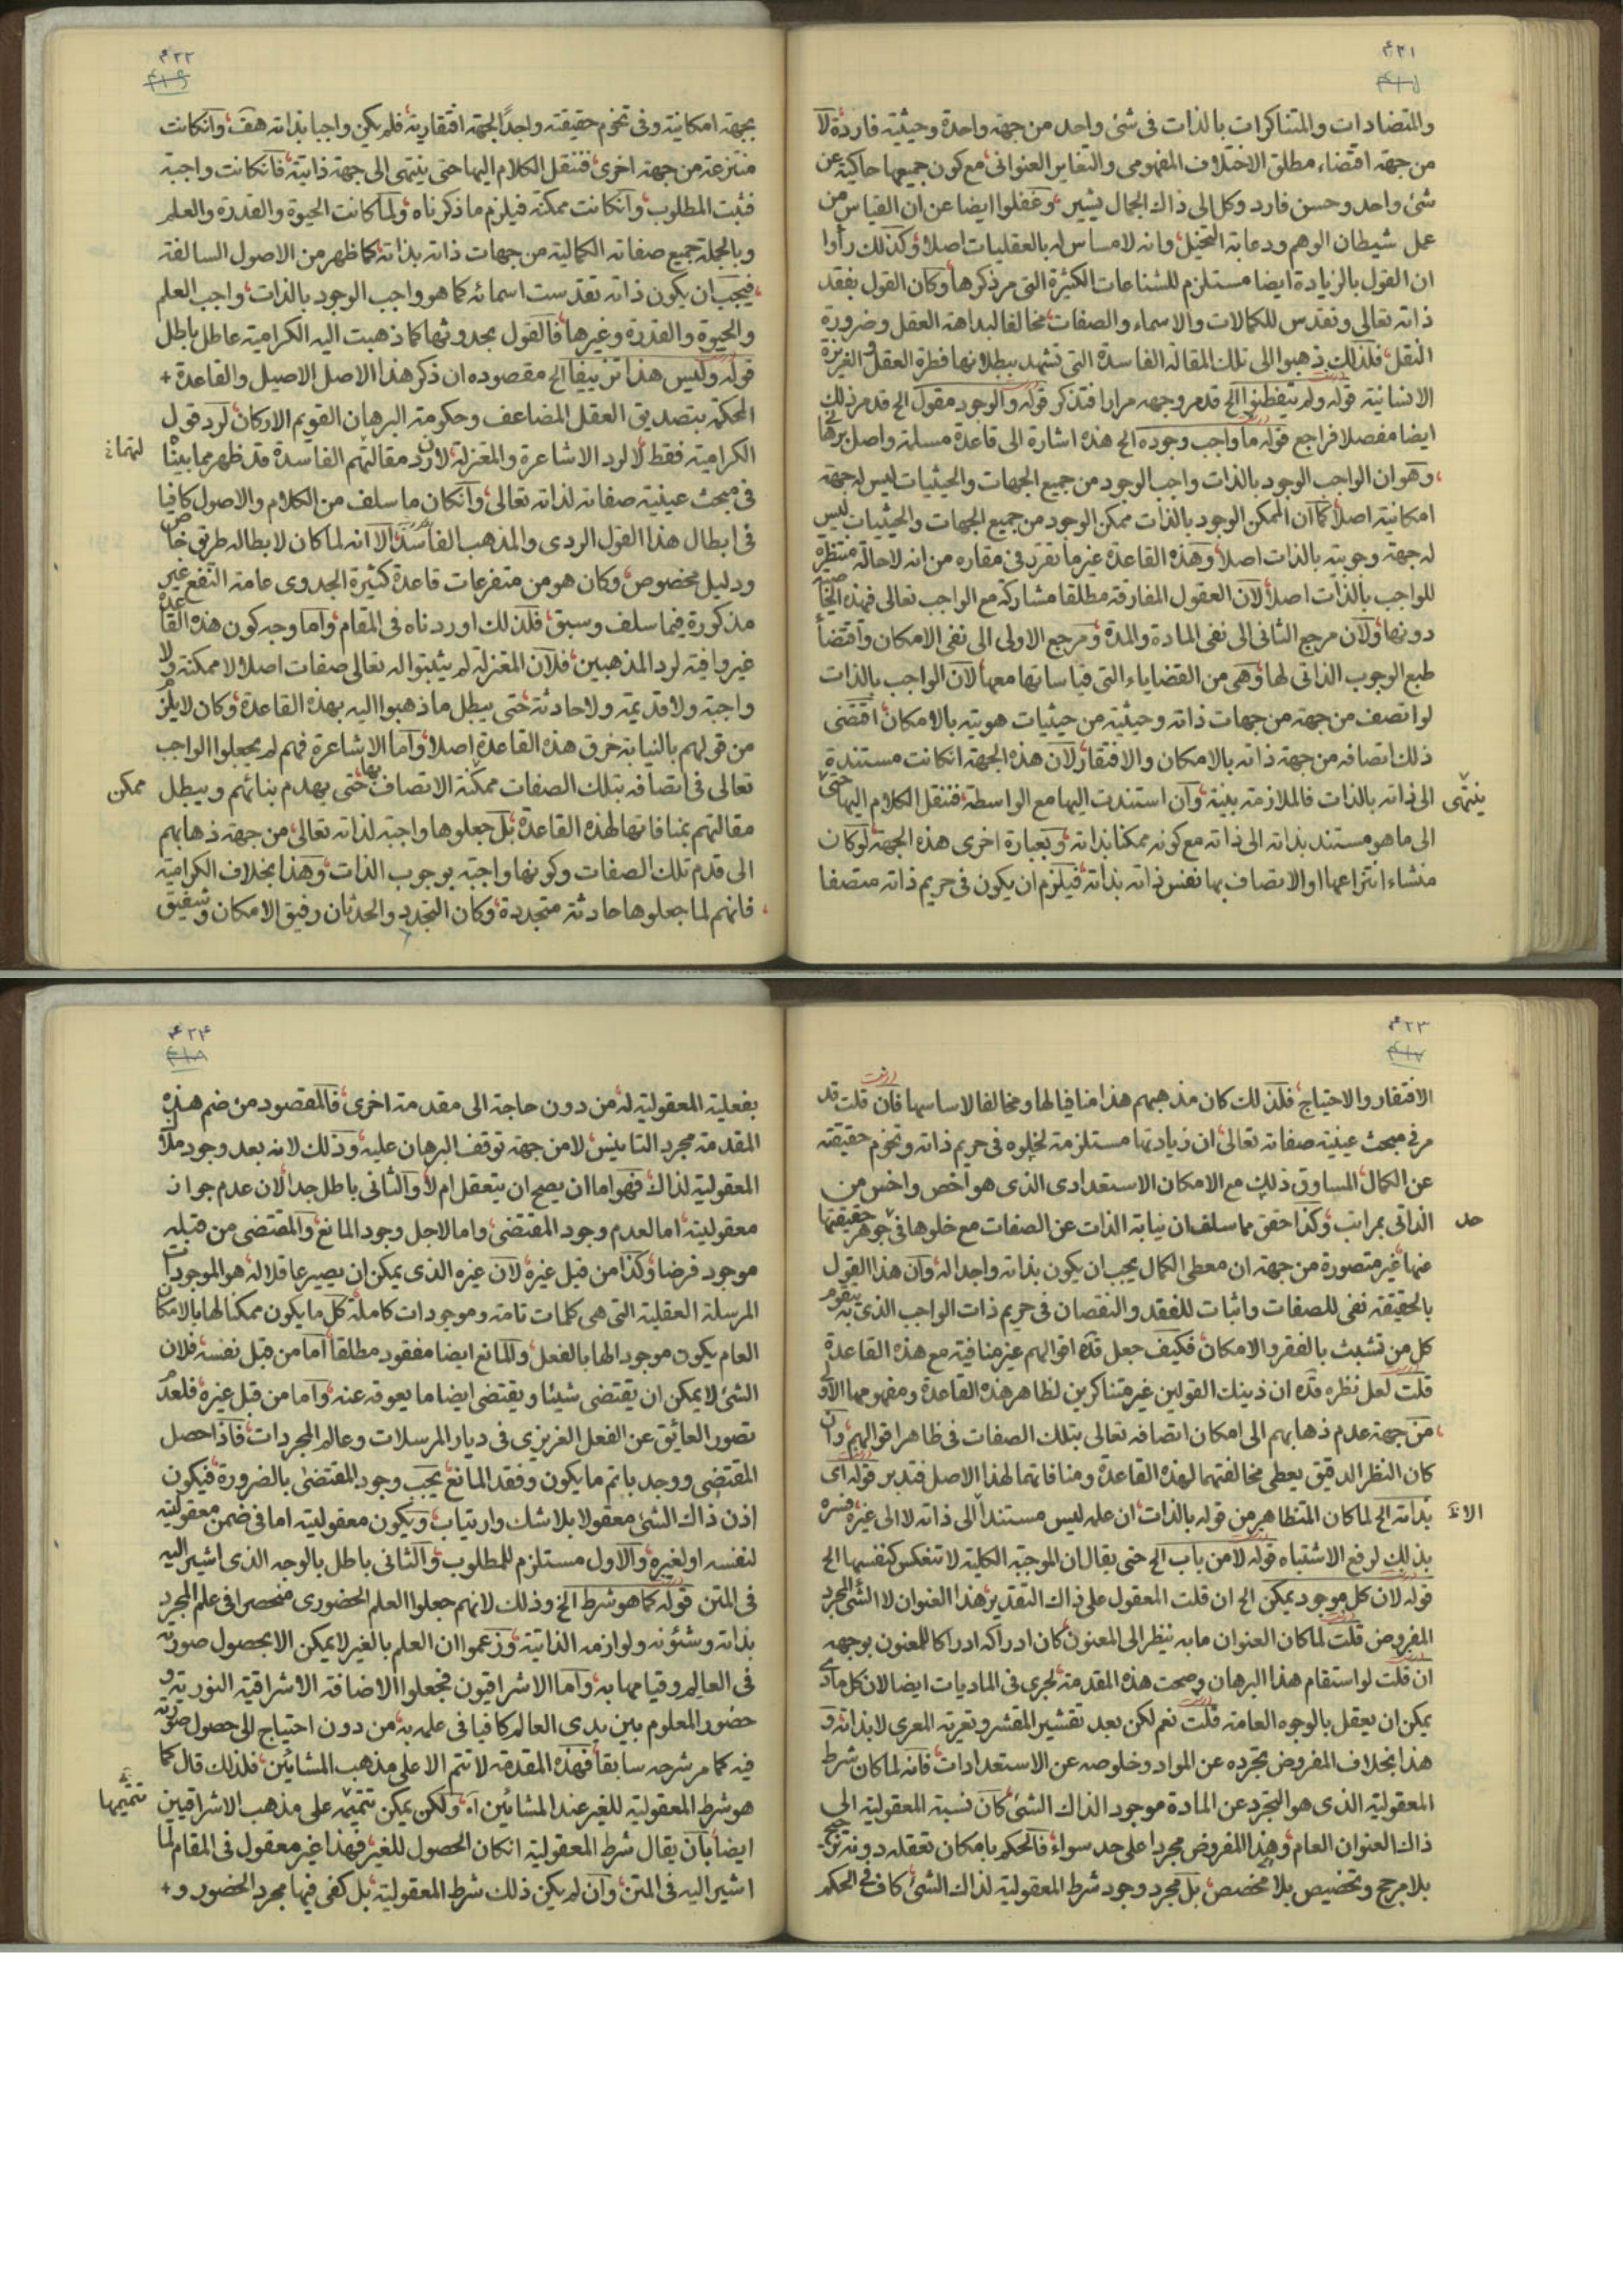 ۴۲۱
۴۱۵
والمتضادات والمتناكرات بالذات فى شئ واحد من جهة واحدة وحيثية فاردة لا
من جهة اقتضاء مطلق الاختلاف المفهومى والتغاير العنوانى مع كون جميعها حاكية عن
شئ واحد وحسن فارد وكل الى ذاك الجمال يشير وغفلوا ايضا عن ان القياس من
عمل شيطان الوهم ودعابة التخيل وانه لامساس له بالعقليات اصلا وكذلك رأوا
ان القول بالزيادة ايضا مستلزم للشناعات الكثيرة التى مر ذكرها وكان القول بفقد
ذاته تعالى وتقدس للكمالات والاسماء والصفات مخالفا لبداهة العقل وضرورة
النقل فلذلك ذهبوا الى تلك المقالة الفاسدة التى تشهد ببطلانها فطرة العقل والغريزة
الانسانية قوله ولم يتفطنوا الخ قد مر وجهه مرارا فتذكر قوله والوجود مقول الخ قد مر ذلك
ايضا مفصلا فراجع قوله ما واجب وجوده الخ هذه اشارة الى قاعدة مسلمة واصل
وهو ان الواجب الوجود بالذات واجب الوجود من جميع الجهات والحيثيات ليس له جهة
امكانية اصلا كما ان الممكن الوجود بالذات ممكن الوجود من جميع الجهات والحيثيات ليس
له جهة وجوبية بالذات اصلا وهذه القاعدة غير ما تقرر فى مقاره من انه لا حالة منتظرة
للواجب بالذات اصلا لان العقول المفارقة مطلقا مشاركة مع الواجب تعالى فى هذه
دونها ولان مرجع الثانى الى نفى المادة والمدة ومرجع الاولى الى نفى الامكان واقتضاء
طبع الوجوب الذاتى لها وهى من القضاياء التى قياساتها معها لان الواجب بالذات
لو اتصف من جهة من جهات ذاته وحيثية من حيثيات هويته بالامكان اقتضى
ذلك اتصافه من جهة ذاته بالامكان والافتقار لان هذه الجهة انكانت مستندة
الى ذاته بالذات فالملازمة بينة وان استندت اليها مع الواسطة فننقل الكلام اليها حتى ينتهى
الى ما هو مستند بذاته الى ذاته مع كونه ممكنا بذاته وبعبارة اخرى هذه الجهة لو كان
منشاء انتزاعها او الاتصاف بها نفس ذاته بذاته فيلزم ان يكون فى حريم ذاته متصفا
۴۲۲
۴۱۶
بجهة امكانية وفى تخوم حقيقته واجدًا لجهة افتقارية فلم يكن واجبا بذاته هف وانكانت
منتزعة من جهة اخرى فننقل الكلام اليها حتى ينتهى الى جهة ذاتية فانكانت واجبة
فثبت المطلوب وانكانت ممكنة فيلزم ما ذكرناه ولما كانت الحيوة والقدرة والعلم
وبالجملة جميع صفاته الكمالية من جهات ذاته بذاته كما ظهر من الاصول السالفة
فيجب ان يكون ذاته تقدست اسمائه كما هو واجب الوجود بالذات واجب العلم
والحيوة والقدرة وغيرها فالقول بحدوثها كما ذهبت اليه الكرامية عاطل باطل
قوله وليس هذا تزييفا الخ مقصوده ان ذكر هذا الاصل الاصيل والقاعدة +
المحكمة بتصديق العقل المضاعف وحكومة البرهان القويم الاركان لرد قول
الكرامية فقط لا لرد الاشاعرة والمعتزلة لان رد مقالتهم الفاسدة قد ظهر مما بينا
فى مبحث عينية صفاته لذاته تعالى وانكان ما سلف من الكلام والاصول كافيا
فى ابطال هذا القول الردى والمذهب الفاسد الا انه لما كان لابطاله طريق خاص
ودليل مخصوص وكان هو من متفرعات قاعدة كثيرة الجدوى عامة النفع غير
مذكورة فيما سلف وسبق فلذلك اوردناه فى المقام واما وجه كون هذه القاعدة
غير وافية لرد المذهبين فلان المعتزلة لم يثبتوا له تعالى صفات اصلا لا ممكنة ولا
واجبة ولا قديمة ولا حادثة حتى يبطل ما ذهبوا اليه بهذه القاعدة وكان لا يلزم
من قولهم بالنيابة خرق هذه القاعدة اصلا واما الاشاعرة فهم لم يجعلوا الواجب
تعالى فى اتصافه بتلك الصفات ممكنة الاتصاف بها حتى يهدم بنائهم ويبطل ممكن
مقالتهم بمنافاتها لهذه القاعدة بل جعلوها واجبة لذاته تعالى من جهة ذهابهم
الى قدم تلك الصفات وكونها واجبة بوجوب الذات وهذا بخلاف الكرامية
فانهم لما جعلوها حادثة متجددة وكان التجدد والحدثان رفيق الامكان وشقيق
۴۲۳
۴۱۷
الافتقار والاحتياج فلذلك كان مذهبهم هذا منافيا لها ومخالفا لاساسها فان قلت قد
مر فى مبحث عينية صفاته تعالى ان زيادتها مستلزمة لخلوه فى حريم ذاته وتخوم حقيقته
عن الكمال المساوق ذلك مع الامكان الاستعدادى الذى هو اخص واخس من
الذاتى بمراتب وكذا حقق مما سلف ان نيابة الذات عن الصفات مع خلوها فى جوهر حقيقتها
عنها غير متصورة من جهة ان معطى الكمال يجب ان يكون بذاته واجدا له وان هذا القول
بالحقيقة نفى للصفات واثبات للفقد والنقصان فى حريم ذات الواجب الذى به يتقوم
كل من تشبث بالفقر والامكان فكيف جعل قده اقوالهم غير منافية مع هذه القاعدة
قلت لعل نظره قده ان ذينك القولين غير متناكرين لظاهر هذه القاعدة ومفهومها الاولى
من جهة عدم ذهابهم الى امكان اتصافه تعالى بتلك الصفات فى ظاهر اقوالهم وان
كان النظر الدقيق يعطى مخالفتهما لهذه القاعدة ومنافاتهما لهذا الاصل فتدبر قوله اى
بذاته الخ لما كان المتظاهر من قوله بالذات ان علمه ليس مستندا الى ذاته لا الى غيره فسره
بذلك لرفع الاشتباه قوله لا من باب الخ حتى يقال ان الموجبة الكلية لا تنعكس كنفسها الخ
قوله لان كل موجود يمكن الخ ان قلت المعقول على ذاك التقدير هذا العنوان لا الشئ المجرد
المفروض قلت لما كان العنوان ما به ينظر الى المعنون كان ادراكه ادراكا للمعنون بوجهه
ان قلت لو استقام هذا البرهان وصحت هذه المقدمة لجرى فى الماديات ايضا لان كل مادى
يمكن ان يعقل بالوجوه العامة قلت نعم لكن بعد تقشير المقشر وتعرية المعرى لا بذاته و
هذا بخلاف المفروض تجرده عن المواد وخلوصه عن الاستعدادات فانه لما كان شرط
المعقولية الذى هو التجرد عن المادة موجودا لذاك الشئ كان نسبة المعقولية الى
ذاك العنوان العام وهذا المفروض مجردا على حد سواء فالحكم بامكان تعقله دونه ترجيح
بلا مرجح وتخصيص بلا مخصص بل مجرد وجود شرط المعقولية لذاك الشئ كاف فى الحكم
۴۲۴
۴۱۸
بفعلية المعقولية له من دون حاجة الى مقدمة اخرى فالمقصود من ضم هذه
المقدمة مجرد التانيس لا من جهة توقف البرهان عليه وذلك لانه بعد وجود ملاك
المعقولية لذاك فهو اما ان يصح ان يتعقل ام لا والثانى باطل جدا لان عدم جواز
معقوليته اما لعدم وجود المقتضى واما لاجل وجود المانع والمقتضى من قبله
موجود فرضا وكذا من قبل غيره لان غيره الذى يمكن ان يصير عاقلا له هو الموجودات
المرسلة العقلية التى هى كلمات تامة وموجودات كاملة كل ما يكون ممكنا لها بالامكان
العام يكون موجودا لها بالفعل والمانع ايضا مفقود مطلقا اما من قبل نفسه فلان
الشئ لا يمكن ان يقتضى شيئا ويقتضى ايضا ما يعوقه عنه واما من قبل غيره فلعدم
تصور العائق عن الفعل الغريزى فى ديار المرسلات وعالم المجردات فاذا حصل
المقتضى ووجد باتم ما يكون وفقد المانع يجب وجود المقتضى بالضرورة فيكون
اذن ذاك الشئ معقولا بلا شك وارتياب ويكون معقوليته اما فى ضمن معقوليته
لنفسه او لغيره والاول مستلزم للمطلوب والثانى باطل بالوجه الذى اشير اليه
فى المتن قوله كما هو شرط الخ وذلك لانهم جعلوا العلم الحضورى منحصرا فى علم المجرد
بذاته وشئونه ولوازمه الذاتية وزعموا ان العلم بالغير لا يمكن الا بحصول صورته
فى العالم وقيامها به واما الاشراقيون فجعلوا الاضافة الاشراقية النورية و
حضور المعلوم بين يدى العالم كافيا فى علمه به من دون احتياج الى حصول صورته
فيه كما مر شرحه سابقا فهذه المقدمة لا تتم الا على مذهب المشائين فلذلك قال كما
هو شرط المعقولية للغير عند المشائين اه ولكن يمكن تتميمه على مذهب الاشراقيين تتميمها
ايضا بان يقال شرط المعقولية انكان الحصول للغير فهذا غير معقول فى المقام لما
اشير اليه فى المتن وان لم يكن ذلك شرط المعقولية بل كفى فيها مجرد الحضور و +